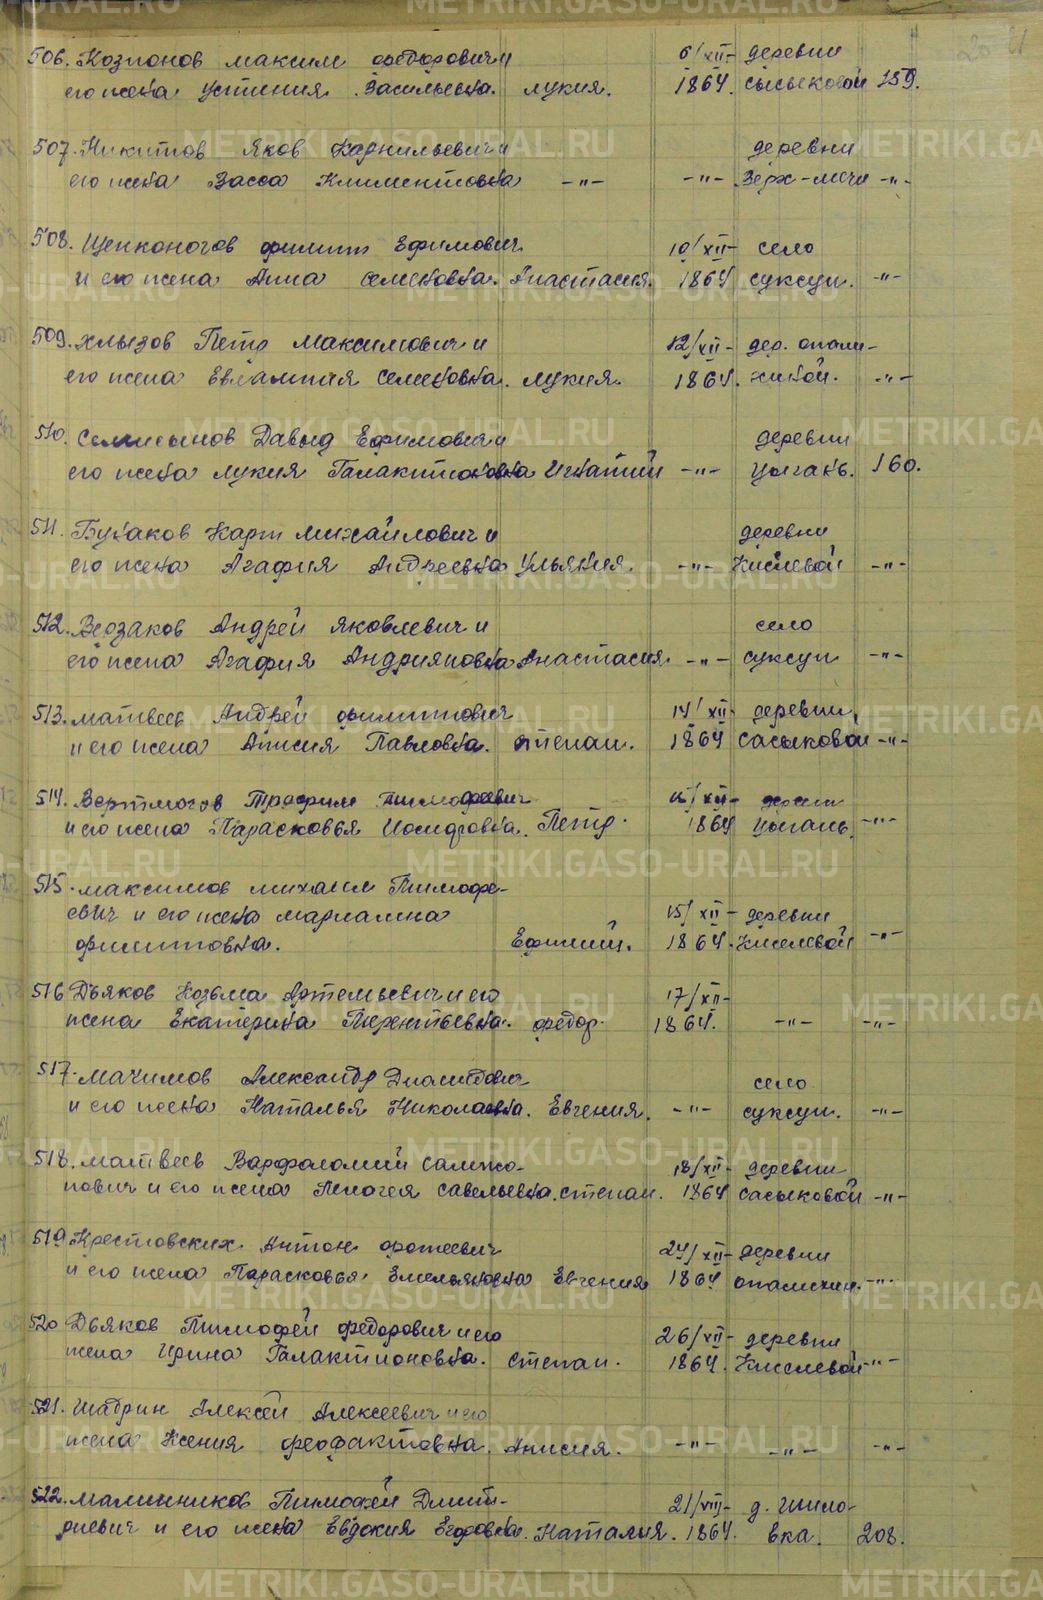 506. Козионов Максим Федорович и 6/XII- деревни
его жена Устиния Васильевна. Лукия. 1864. Сысыковой 159.
507. Никитов Яков Карнильевич и деревни
его жена Васса Климентовна -"- -"- Верх-Мечи -"-
508. Щепконогов Филипп Ефимович 10/XII- село
и его жена Анна Семеновна. Анастасия. 1864 Суксун. -"-
509. Хлызов Петр Максимович и 12/XII- дер. Опали-
его жена Евлампия Семеновна. Лукия. 1864. хиной. -"-
510. Семисынов Давыд Ефимович и деревни
его жена Лукия Галактионовна Игнатий -"- Цыгань. 160.
511. Бунаков Карп Михайлович и деревни
его жена Агафия Андреевна Ульяния. -"- Киселевой -"-
512. Возаков Андрей Яковлевич и село
его жена Агафия Андрияновна Анастасия -"- Суксун -"-
513. Матвеев Андрей Филиппович 14/XII- деревни
и его жена Анисия Павловна. Степан. 1864 Сасыковой -"-
514. Вертипогов Трофим Тимофеевич XII- дерев
и его жена Парасковья Иосифовна. Петр. 1864 Цыгань. -"-
515. Максимов Михаил Тимофе-
евич и его жена Мариамна 15/XII- деревни
Филипповна. Ефимий. 1864. Киселевой -"-
516 Дьяков Козьма Артемьевич и его 17/XII-
жена Екатерина Терентьевна. Федор. 1864. -"- -"-
517. Мачимов Александр Диомидович село
и его жена Наталья Николаевна. Евгения. -"- Суксун. -"-
518. Матвеев Варфоломий Сампсо- 18/XII- деревни
нович и его жена Пелагея Савельевна. Степан. 1864 Сасыковой -"-
519 Крестовских Антон Фотеевич 24/XII- деревни
и его жена Парасковья Емельяновна Евгения 1864 Опалихин. -"-
520 Дьяков Тимофей Федорович и его 26/XII- деревни
жена Ирина Галактионовна. Степан. 1864. Киселевой -"-
521. Шабрин Алексей Алексеевич и его
жена Ксения Феофактовна. Анисия. -"- -"- -"-
522. Малинников Тимофей Дмит- 21/VIII- д. Шило-
риевич и его жена Евдокия Егоровна. Наталия. 1864. вка. 208.
METRIKI.GASO-URAL.RU